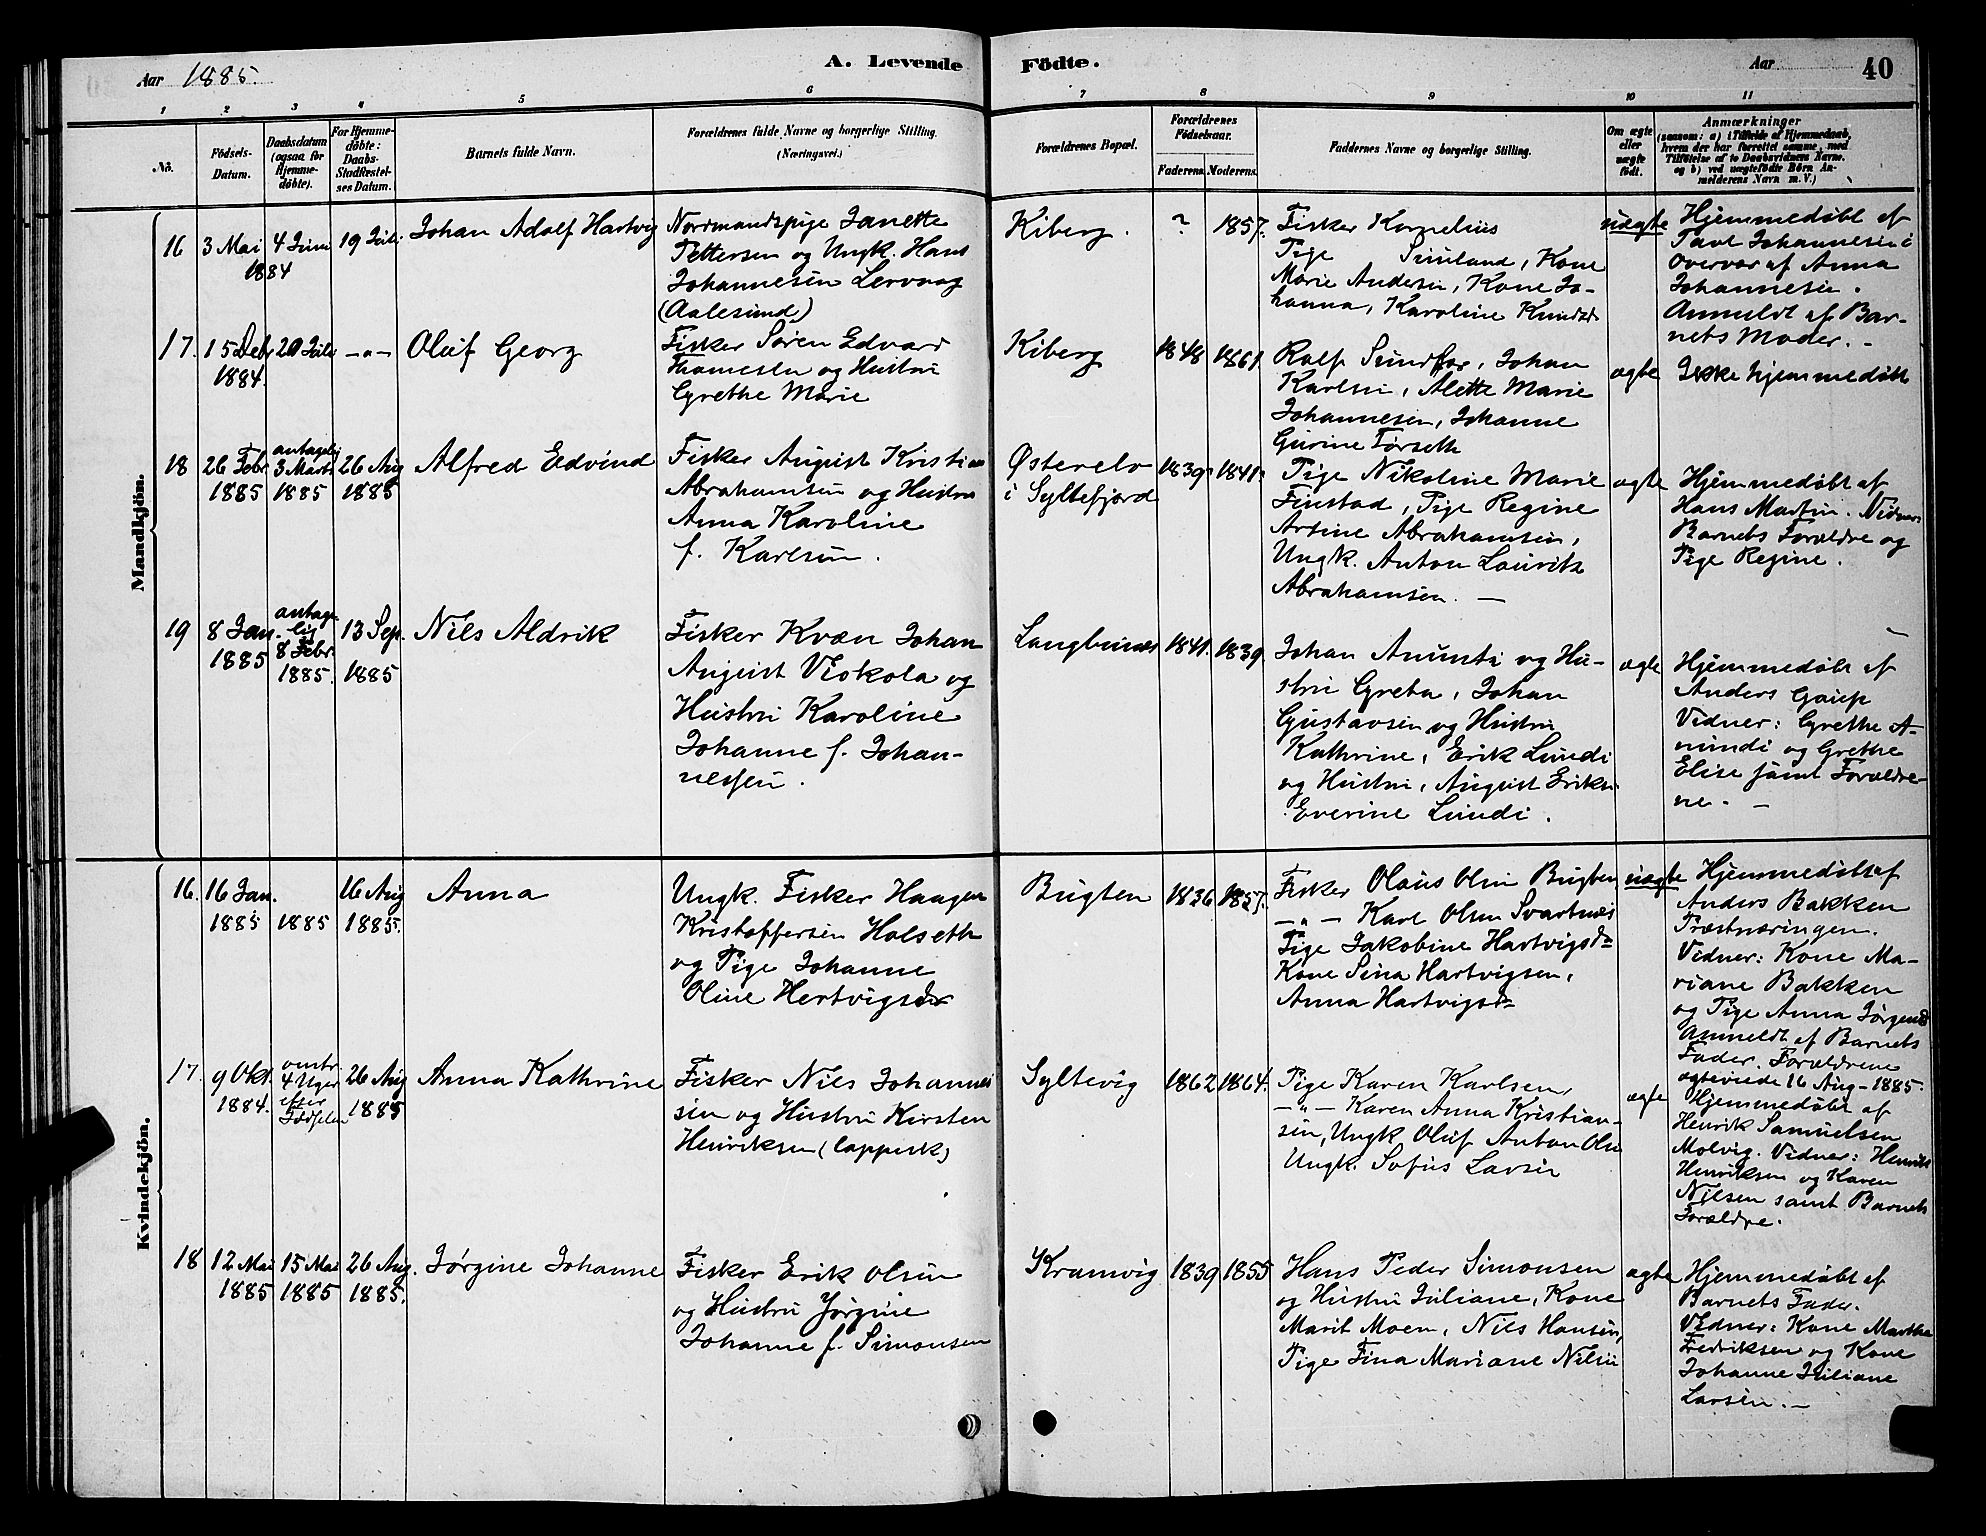 Aar 1885.
A. Levende Födte.
Aar
40
1 2 3 4 5 6 7 8 9 10 11
No.
Födsels-
Datum.
Daabsdatum
(ogsaa for
Hjemme-
döbte).
For Hjemme-
döbte:
Daabs-
Stadfæstel-
ses Datum.
Barnets fulde Navn.
Forældrenes fulde Navne og borgerlige Stilling.
(Næringsvei.)
Forældrenes Bopæl.
Forældrenes
Födselsaar.
Faderens. Moderens.
Faddernes Navne og borgerlige Stilling.
Om ægte
eller
uægte
födt.
Anmærkninger
(saasom: a) i Tilfælde af Hjemmedaab,
hvem der har forrettet samme, med
Tilföielse af to Daabsvidners Navne.
og b) ved uægtefödte Börn An-
melderens Navn m. V.)
Mandkjön.
16
3 Mai
1884
4 Juni
19 Juli
Johan Adolf Hartvig
Normandspige Janette
Pettersen og Ungk. Hans
Johannesen Lervaag
(Aalesund)
Kiberg.
?
1857.
Fisker Kornelius
Pige Simland, Kone
Marie Andersen, Kone Jo-
hanna, Karoline Knudsd
uægte
Hjemmedøbt af
Pavl Johannesen i
overvær af Anna
Johannesen.
Anmeldt af Bar-
nets Moder. -
17.
15 Debr
1884.
20 Juli
-"-
Oluf Georg
Fisker Søren Edvard
Thomesen og Hustru
Grethe Marie
Kiberg
1848
1861.
Rolf Sundfær, Johan
Karlsen, Alette Marie
Johannesen, Johanne
Gurine Førseth
ægte
Ikke hjemmedøbt
18
26 Febr
1885
antagelig
3 Marts
1885
26 Aug
1885
Alfred Edvind
Fisker August Kristian
Abrahamsen og Hustru
Anna Karoline
f. Karlsen.
Østerelv
i Syltefjord
1839
1841.
Pige Nikoline Marie
Finstad, Pige Regine
Arsine Abrahamsen,
Ungk. Anton Lauritz
Abrahamsen. -
ægte
Hjemmedøbt af
Hans Martin. Vidner
Barnets Forældre og
Pige Regine.
19
8 Jan.
1885
antage
lig
8 Febr.
1885.
13 Sep.
1885
Nils Aldrik
Fisker Kvæn Johan
August Viokola og
Hustru Karoline
Johanne f. Johan-
nessen.
Langbunes
1841.
1839.
Johan Anunti og Hu-
stru Greta, Johan
Gustavsen og Hustru
Kathrine, Erik Lundi
og Hustru, August Eriksen
Everine Lundi.
ægte
Hjemmedøbt af
Anders Gaup
Vidner: Grethe A-
nundi og Grethe
Elise samt Forældre-
ne. -
Kvindekjön.
16.
16 Jan.
1885
1885
16 Aug
1885.
Anna
Ungk. Fisker Haagen
Kristoffersen Halseth
og Pige Johanne
Oline Hertvigsdr
Bugten
1836
1857.
Fisker Olaus Olsen Bugten
-"- Karl Olsen Svartnes
Pige Jakobine Hartvigsdr
Kone Sina Hartvigsen,
Anna Hartvigsdr
uægte
Hjemmedøbt af
Anders Bakken
Præstnæringen.
Vidner: Kone Ma-
riane Bakken
og Pige Anna Jørgensd
Anmeldt af Barnets
Fader. Forældrene
ægteviede 16 Aug - 1885.
17.
9 Okt.
1884.
omtr.
4 Uger
efter
Fødselen
26 Aug
1885
Anna Kathrine
Fisker Nils Johannes
sen og Hustru Kirsten
Henriksen (lappisk)
Syltevig
1862
1864.
Pige Karen Karlsen,
-"- Karen Anna Kristian-
sen, Ungk Oluf Anton Olsen
Ungk. Sofus Larsen
ægte
Hjemmedøbt af
Henrik Samuelsen
Molvig. Vidner: Henrik
Henriksen og Karen
Nilsen samt Barnets
Forældre.
18
12 Mai
1885
15 Mai
1885
26 Aug.
1885.
Jørgine Johanne
Fisker Erik Olsen
og Hustru Jørgine
Johanne f. Simonsen
Kramvig
1839
1855
Hans Peder Simonsen
og Hustru Juliane, Kone
Marit Moen, Nils Hansen,
Pige Fina Mariane Nilsen
ægte
Hjemmedøbt af
Barnets Fader.
Vidner: Kone Marthe
Fredriksen og Kone
Johanne Juliane
Larsen. -